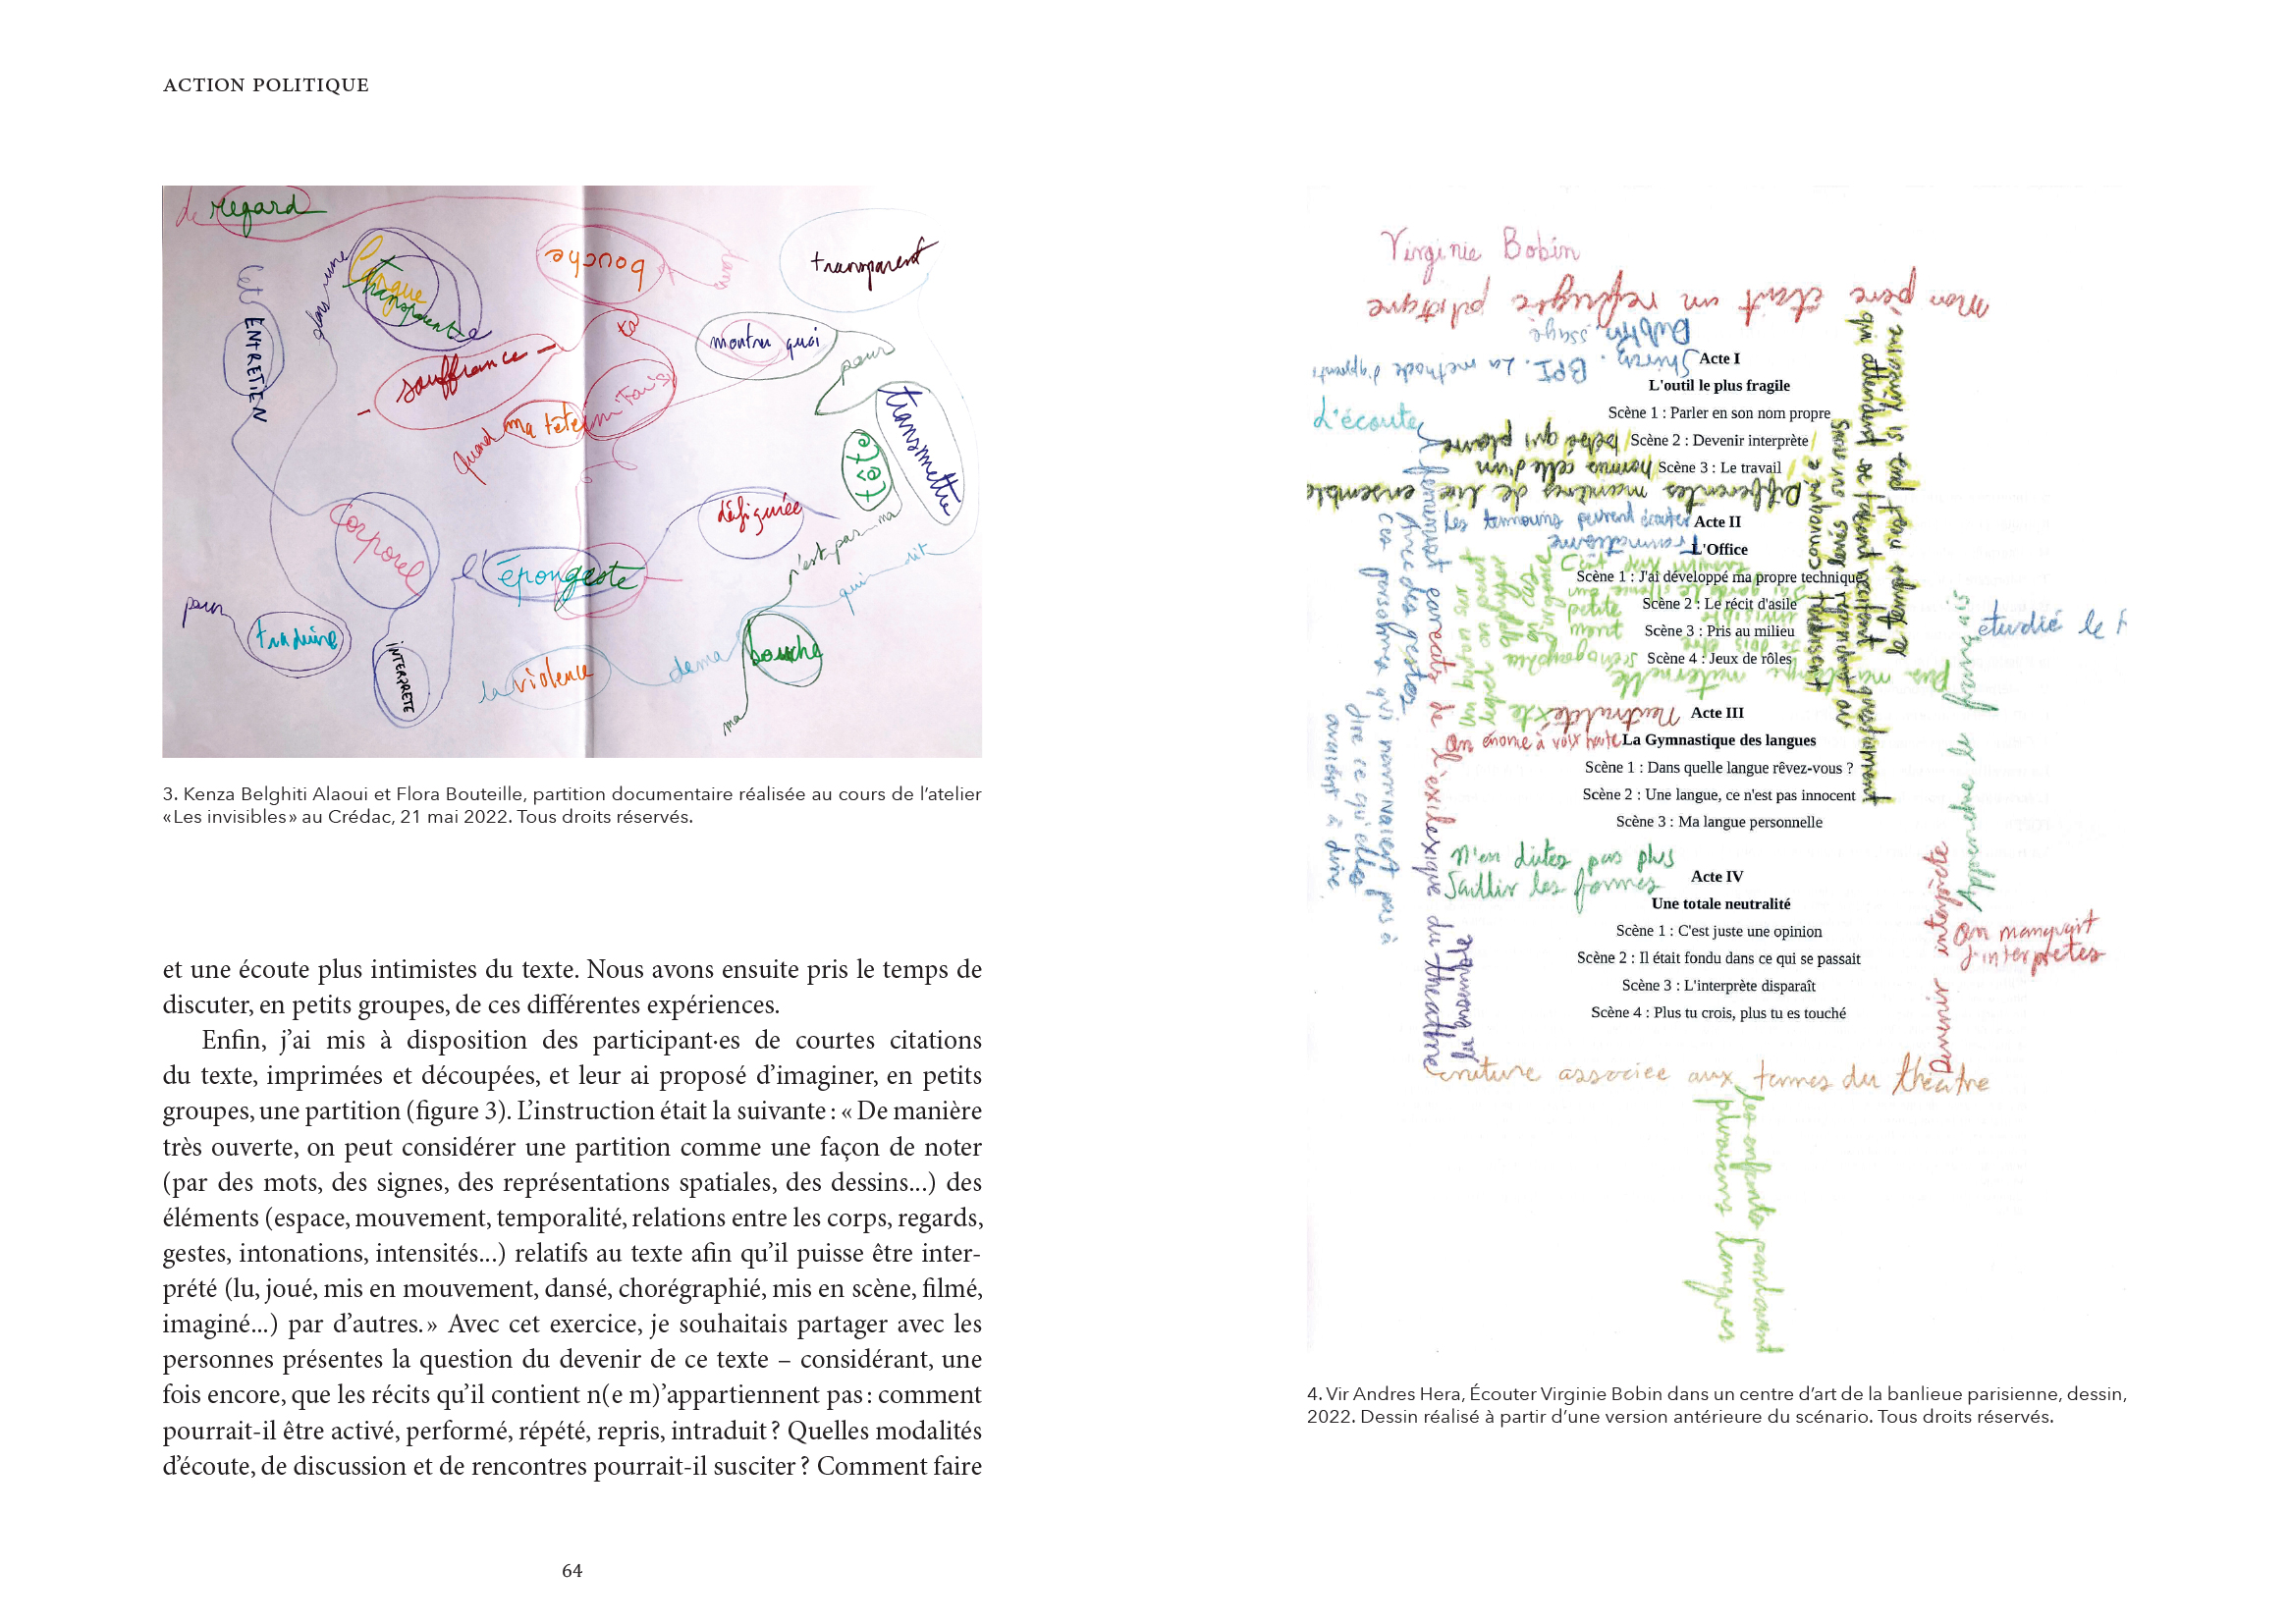 ACTION POLITIQUE
de regard
[et
ENTRETIEN
dans une
langue
transparente
bouche
dans
transparent
souffrance
ta
montrer quoi
pour
quand ma tête
transmettre
tête
corporel
l'épongeste
défigurée
n'est pas ma
qui dit
pour
traduire
INTERPRETE
la violence
de ma
bouche
ma
3. Kenza Belghiti Alaoui et Flora Bouteille, partition documentaire réalisée au cours de l’atelier
«Les invisibles» au Crédac, 21 mai 2022. Tous droits réservés.
et une écoute plus intimistes du texte. Nous avons ensuite pris le temps de
discuter, en petits groupes, de ces différentes expériences.
Enfin, j’ai mis à disposition des participant·es de courtes citations
du texte, imprimées et découpées, et leur ai proposé d’imaginer, en petits
groupes, une partition (figure 3). L’instruction était la suivante : « De manière
très ouverte, on peut considérer une partition comme une façon de noter
(par des mots, des signes, des représentations spatiales, des dessins...) des
éléments (espace, mouvement, temporalité, relations entre les corps, regards,
gestes, intonations, intensités...) relatifs au texte afin qu’il puisse être inter-
prété (lu, joué, mis en mouvement, dansé, chorégraphié, mis en scène, filmé,
imaginé...) par d’autres. » Avec cet exercice, je souhaitais partager avec les
personnes présentes la question du devenir de ce texte – considérant, une
fois encore, que les récits qu’il contient n(e m)’appartiennent pas : comment
pourrait-il être activé, performé, répété, repris, intraduit ? Quelles modalités
d’écoute, de discussion et de rencontres pourrait-il susciter ? Comment faire
64
Virginie Bobin
Mon père était un réfugié politique
Dublin
Shirin. BPI. La méthode d'apprenti
ssage
D'écoute
Acte I
L'outil le plus fragile
Scène 1 : Parler en son nom propre
Scène 2 : Devenir interprète
Scène 3 : Le travail
Différentes manières de lire ensemble
hormis celle d'un
bébé qui pleure
Acte II
L'Office
Scène 1 : J'ai développé ma propre technique
Scène 2 : Le récit d'asile
Scène 3 : Pris au milieu
Scène 4 : Jeux de rôles
Les temmoins peuvent écouter
traumatisme
pas ma langue maternelle
Avec des gestes
ces personnes qui n'arrivaient pas à
dire ce qu'elles
avaient à dire.
Neutralité
texte
On énonce à voix haute
Acte III
La Gymnastique des langues
Scène 1 : Dans quelle langue rêvez-vous ?
Scène 2 : Une langue, ce n'est pas innocent
Scène 3 : Ma langue personnelle
N'en dites pas plus
Saillir les formes
Acte IV
Une totale neutralité
Scène 1 : C'est juste une opinion
Scène 2 : Il était fondu dans ce qui se passait
Scène 3 : L'interprète disparaît
Scène 4 : Plus tu crois, plus tu es touché
étudié le f
Apprendre le français
Devenir interprète
On manquait
d'interprètes
lexique du theattre
criture associée aux termes du théatre
les enfants parlavent
plusieurs langues
4. Vir Andres Hera, Écouter Virginie Bobin dans un centre d’art de la banlieue parisienne, dessin,
2022. Dessin réalisé à partir d’une version antérieure du scénario. Tous droits réservés.